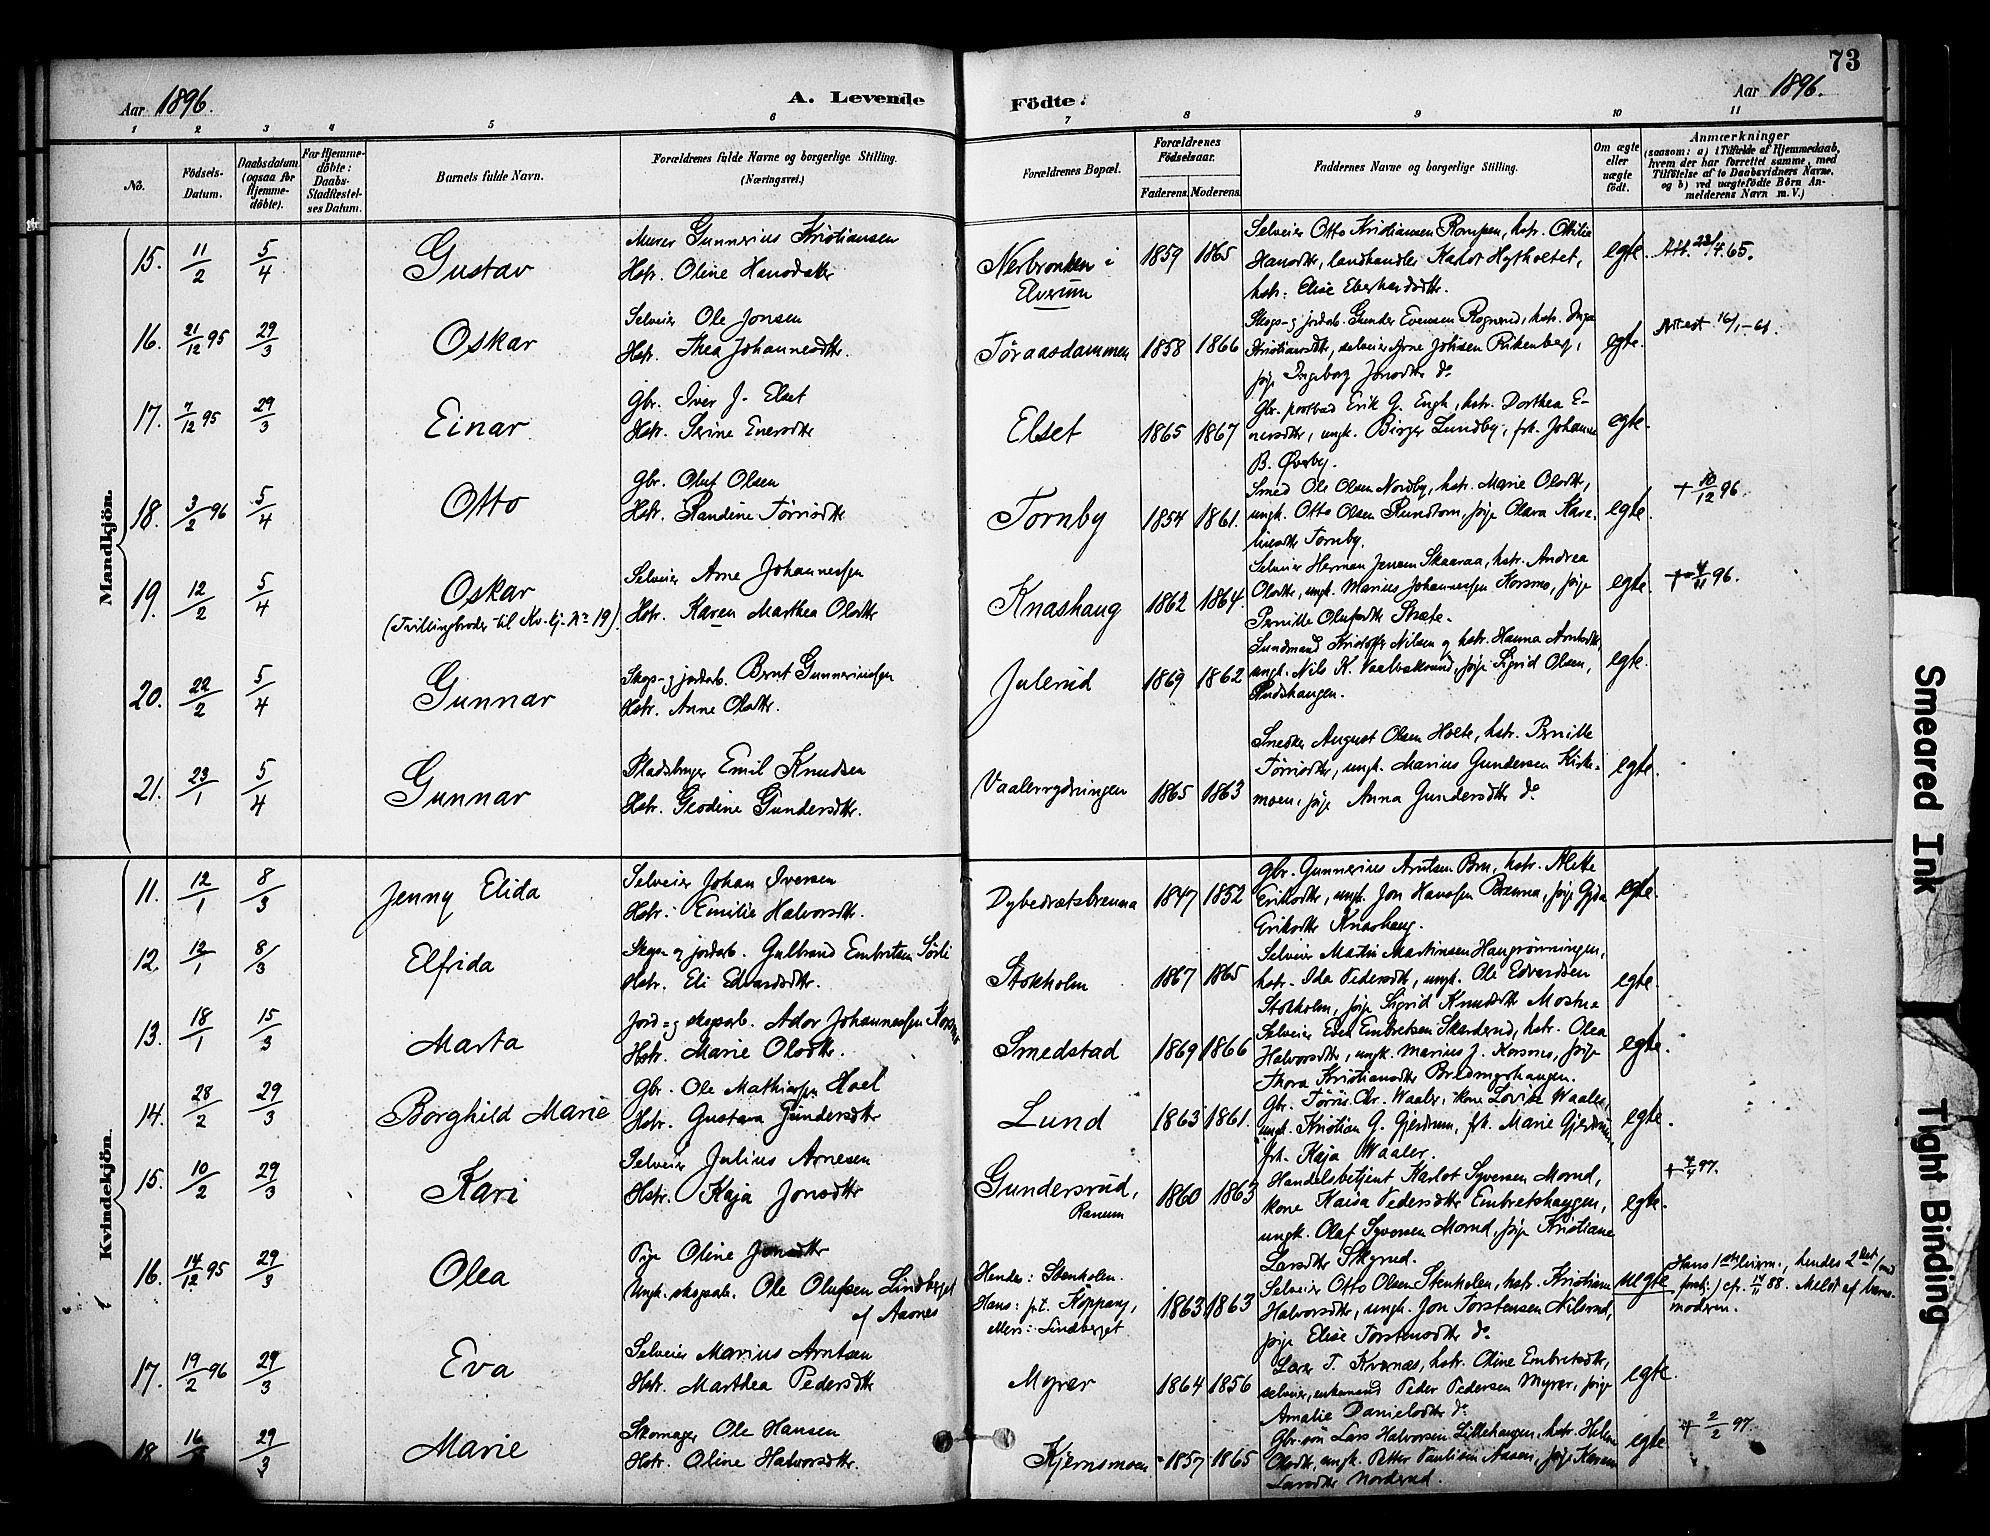 73
Aar 1896.
A. Levende
Födte.
Aar 1896.
1 2 3 4 5 6 7 8 9 10 11
No.
Födsels-Datum.
Daabsdatum (ogsaa for Hjemme-döbte).
For Hjemme-döbte: Daabs-Stadfæstel-ses Datum.
Barnets fulde Navn.
Forældrenes fulde Navne og borgerlige Stilling.
(Næringsvei.)
Forældrenes Bopæl.
Forældrenes Födselsaar.
Faderens. Moderens.
Faddernes Navne og borgerlige Stilling.
Om ægte eller uægte födt.
Anmærkninger
(saasom: a) i Tilfælde af Hjemmedaab,
hvem der har forrettet samme, med
Tilföielse af to Daabsvidners Navne,
og b) ved uægtefödte Börn An-
melderens Navn m. V.)
Mandkjön.
15. 11/2 5/4 Gustav
Murer Gunnerius Kristiansen
Hstr. Oline Hansdatter
Nerbronken i
Elverum
1859 1865
Selveier Otto Kristiansen Rompen, hstr. Otilie
Hansdtr, landhandler Karlot Hytholtet,
hstr. Elise Eberhardsdtr.
egte. Att. 22/4.65.
16. 21/12 95 29/3 Oskar
Selveier Ole Jonsen
Hstr. Thea Johannesdtr.
Töraasdammen 1858 1866
Skogs- og jordarb. Gunder Evensen Rognerud, hstr. Inga
Kristiansdtr, selveier Arne Johnsen Rikenberg,
pige Ingeborg Jonsdtr do
egte. Attest 16/1-61.
17. 7/12 95 29/3 Einar
Gbr. Iver J. Elset
Hstr. Serine Enersdtr
Elset 1865 1867
Gbr. postbud Erik G. Engh, hstr. Dorthea E-
nersdtr, ungk. Birger Lundby, frk. Johanne
B. Øverby.
egte.
18. 3/2 96 5/4 Otto
Gbr. Oluf Olsen
Hstr. Randine Törrisdtr
Tornby 1854 1861.
Smed Ole Olsen Nordby, hstr. Marie Olsdtr,
ungk. Otto Olsen Rundtom, pige Olava Karo-
linesdtr Tornby.
egte. + 10/12 96.
19. 12/2 5/4 Oskar
(Tvillingbroder til Kv.kj. No 19).
Selveier Arne Johannessen
Hstr. Karen Marthea Olsdtr
Knashaug 1862 1864.
Selveier Herman Jensen Skaaraa, hstr. Andrea
Olsdtr, ungk. Marius Johannessen Korsmo, pige
Pernille Olufsdtr Snæte.
egte. + 4/11 96.
20. 22/2 5/4 Gunnar
Skogs- og jordarb. Bernt Gunneriussen
Hstr. Anne Olsdtr.
Julerud 1869 1862
Sundmand Kristoffer Nilsen og hstr. Hanna Arntsdtr,
ungk. Nils K. Vaalerstrand, pige Sigrid Olsen,
Rudshaugen.
egte.
21. 23/1 5/4 Gunnar
Pladsbruger Emil Knudsen
Hstr. Geodine Gundersdtr.
Vaalerrydningen 1865 1863
Smedker August Olsen Holte, hstr. Pernille
Törrisdtr, ungk. Marius Gundersen Kirke-
moen, pige Anna Gundersdtr do
egte.
Kvindekjön.
11. 12/1 8/3 Jenny Elida
Selveier Johan Iversen
Hstr. Emilie Halvorsdtr.
Dybedrætsbrenna 1847 1852
Gbr. Gunnerius Arntsen Bru, hstr. Mette
Eriksdtr, ungk. Jon Hansen Brenna, pige Gyda
Eriksdtr Knashaug.
egte.
12. 12/1 8/3 Elfrida
Skogs- og jordarb. Gulbrand Embretsen Sörli
Hstr. Eli Edvardsdtr.
Stokholm 1867 1865
Selveier Martin Martinsen Haugrönningen,
hstr. Ida Pedersdtr, ungk. Ole Edvardsen
Stokholm, pige Sigrid Knudsdtr Mostue
egte.
13. 18/1 15/3 Marta
Jord- og skogsarb. Ador Johannessen Korsmo
Hstr. Marie Olsdtr.
Smedstad 1869 1866
Selveier Even Embretsen Skarderud, hstr. Olea
Halvorsdtr, ungk. Marius J. Korsmo, pige
Thora Kristiansdtr Bredmyrhaugen.
egte.
14. 28/2 29/3 Borghild Marie
Gbr. Ole Mathiassen Hoel
Hstr. Gustava Gundersdtr
Lund 1863 1861.
Gbr. Törris Chr. Waaler, kone Lovise Waaler,
ungk. Kristian G. Gjerdrum, frk. Marie Gjerdrum,
frk. Kaja Waaler.
egte.
15. 10/2 29/3 Kari
Selveier Julius Arnesen
Hstr. Kaja Jonsdtr
Gundersrud,
Ranum
1860 1863
Handelsbetjent Karlot Syversen Mornd,
kone Kaisa Pedersdtr Embretshaugen,
ungk. Olaf Syversen Mornd, pige Kristiane
Larsdtr Skyrud.
egte. + 4/4 97.
16. 14/12 95 29/3 Olea
Pige Oline Jonsdtr
Ungk. skogsarb. Ole Olufsen Lindberget
af Aasnes
Hendes: Stenholen.
Hans: p.t. Koppang,
ellers: Lindberget
1863 1863
Selveier Otto Olsen Stenholen, hstr. Kristiane
Halvorsdtr, ungk. Jon Torstensen Nilsrud,
pige Elise Torstensdtr do
uegte
Hans 1ste leierm., hendes 2det (med
forskj.) cfr. 14/11 88. Meldt af barne-
moderen.
17. 19/2 96 29/3 Eva
Selveier Marius Arntsen
Hstr. Marthea Pedersdtr
Myrer 1864 1856
Lærer T. Kvernæs, hstr. Oline Embretsdtr,
selveier, enkemand Peder Pedersen Myrer, pige
Amalie Danielsdtr do
egte.
18. 16 29/3 Marie
Skomager Ole Hansen
Hstr. Oline Halvorsdtr.
Kjernsmoen 1857 1865
Gbr.sön Lars Halvorsen Lillehaugen, hstr. Helene
Olsdtr, ungk. Petter Paulsen Aasen, pige Karen
Larsdtr Norderud.
egte. + 2/2 97.
Smeared Ink
Tight Binding